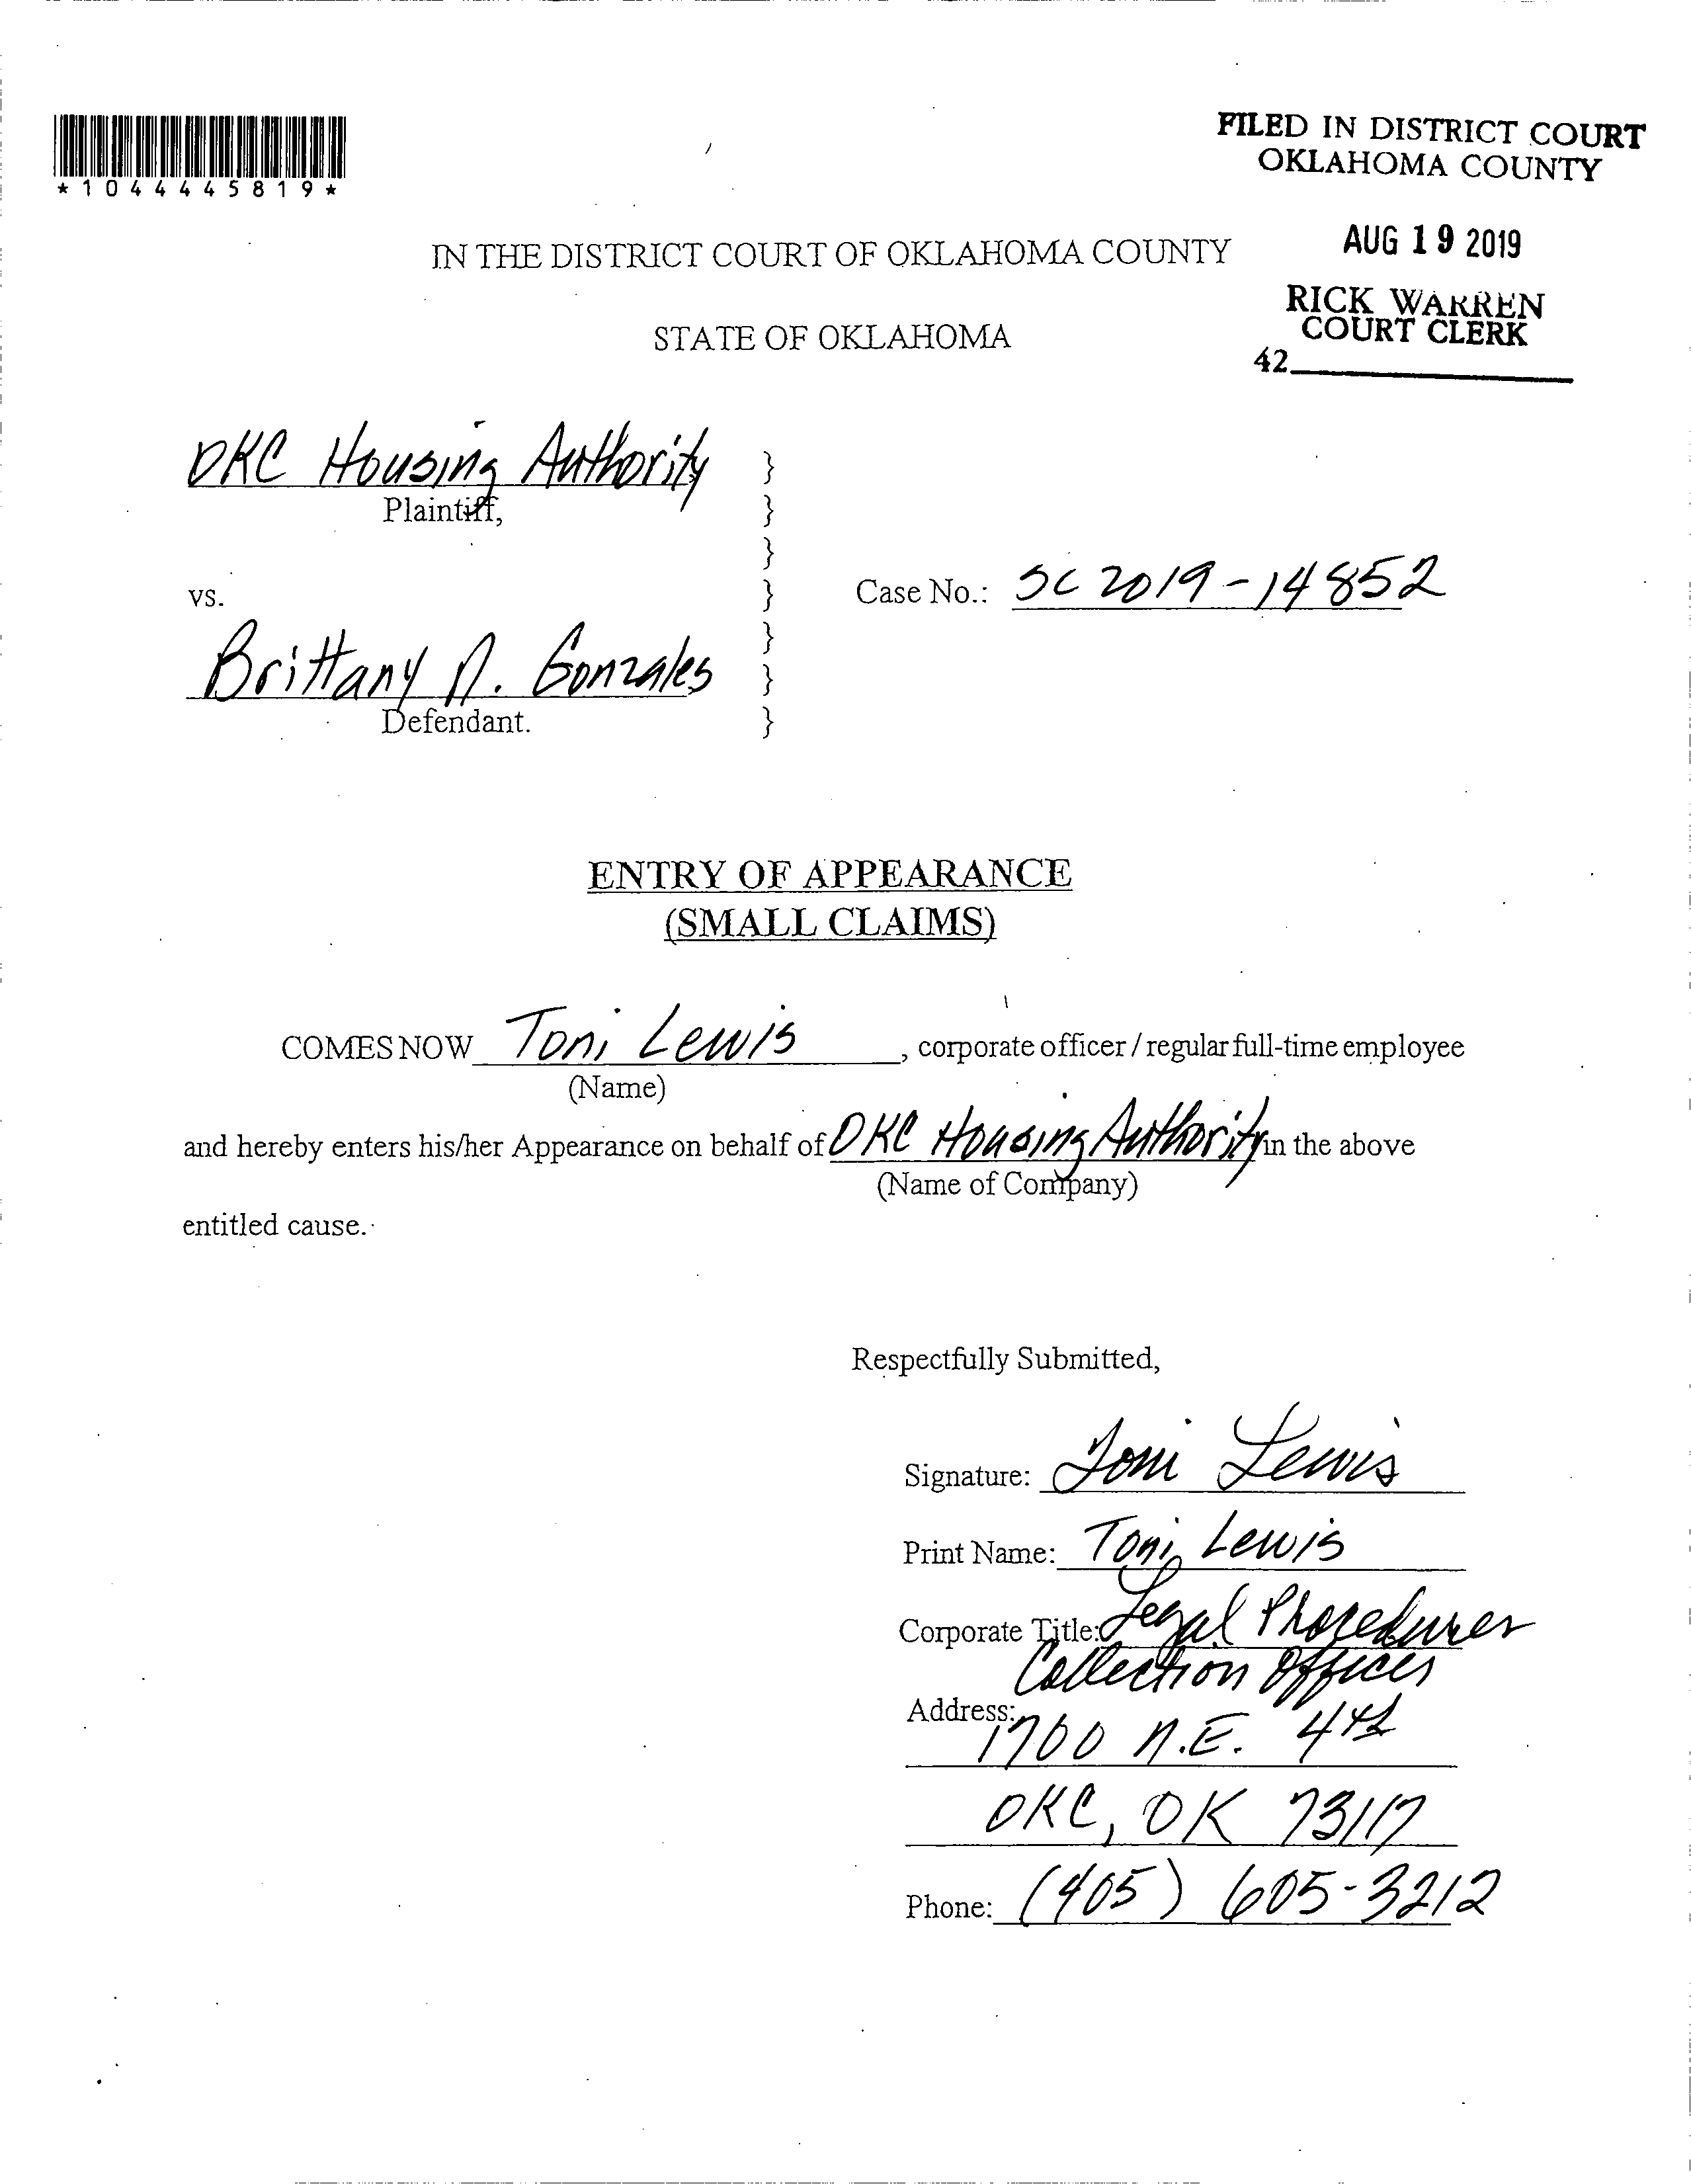 FILED IN DISTRICT COURT
OKLAHOMA COUNTY
*1044445819*
AUG 19 2019
IN THE DISTRICT COURT OF OKLAHOMA COUNTY
RICK WARREN
COURT CLERK
STATE OF OKLAHOMA
42
OKC Housing Authority }
Plaintiff, }
}
vs. } Case No.: SC 2019-14852
}
Brittany N. Gonzales }
Defendant. }
ENTRY OF APPEARANCE
(SMALL CLAIMS)
COMES NOW Toni Lewis, corporate officer / regular full-time employee
(Name)
and hereby enters his/her Appearance on behalf of OKC Housing Authority in the above
(Name of Company)
entitled cause.
Respectfully Submitted,
Signature: Toni Lewis
Print Name: Toni Lewis
Corporate Title: Legal
Collection Officer
Address:
1700 N.E. 4th
OKC, OK 73117
Phone: (405) 605-3212